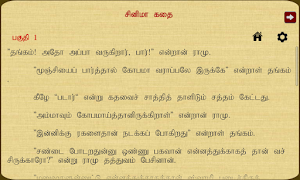 சினிமா கதை
பகுதி 1
"தங்கம்! அதோ அப்பா வருகிறார், பார்!" என்றான் ராமு.
"மூஞ்சியைப் பார்த்தால் கோபமா வராப்பலே இருக்கே" என்றாள் தங்கம்
கீழே "படார்" என்று கதவைச் சாத்தித் தாளிடும் சத்தம் கேட்டது.
"அம்மாவும் கோபமாய்த்தானிருக்கிறாள்" என்றான் ராமு.
"இன்னிக்கு ரகளைதான் நடக்கப் போகிறது" என்றாள் தங்கம்.
"சண்டை போடறதுன்னு ஒண்ணு பகவான் என்னத்துக்காகத் தான் வச்
சிருக்காரோ?" என்று ராமு தத்துவம் பேசினான்.